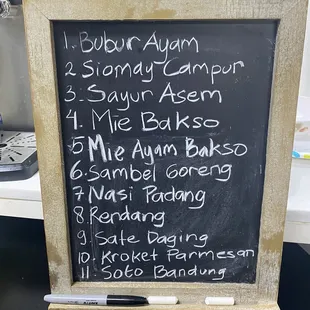 1. Bubur Ayam
2 Siomay Campur
3. Sayur Asem
4. Mie Bakso
5 Mie Ayam Bakso
6. Sambel Goreng
7 Nasi Padang
8. Rendang
9. Sate Daging
10. Kroket Parmesan
11. Soto Bandung